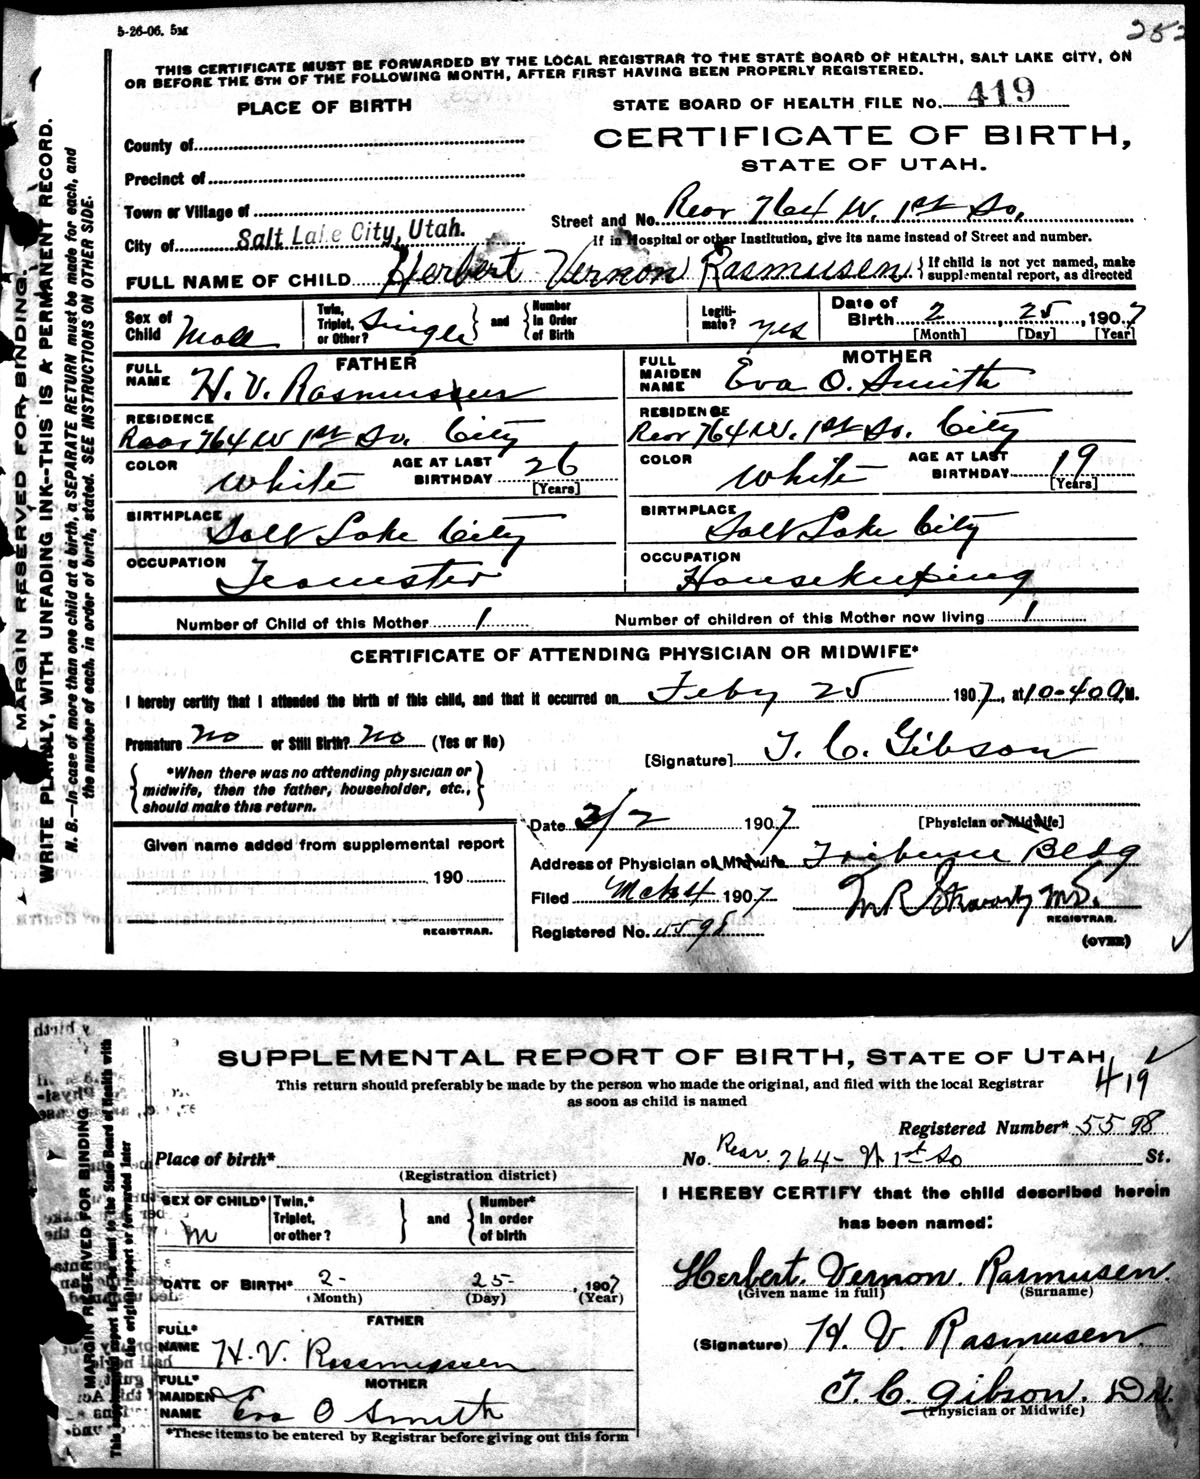 5-26-06. 5M
252
THIS CERTIFICATE MUST BE FORWARDED BY THE LOCAL REGISTRAR TO THE STATE BOARD OF HEALTH, SALT LAKE CITY, ON
OR BEFORE THE 5TH OF THE FOLLOWING MONTH, AFTER FIRST HAVING BEEN PROPERLY REGISTERED.
MARGIN RESERVED FOR BINDING.
WRITE PLAINLY, WITH UNFADING INK--THIS IS A PERMANENT RECORD.
N. B.--In case of more than one child at a birth, a SEPARATE RETURN must be made for each, and
the number of each, in order of birth, stated. SEE INSTRUCTIONS ON OTHER SIDE.
PLACE OF BIRTH
County of
Precinct of
Town or Village of
City of Salt Lake City, Utah.
STATE BOARD OF HEALTH FILE NO. 419
CERTIFICATE OF BIRTH,
STATE OF UTAH.
Street and No. Rear 764 W. 1st So.
If in Hospital or other Institution, give its name instead of Street and number.
FULL NAME OF CHILD Herbert Vernon Rasmusen { If child is not yet named, make
supplemental report, as directed
Sex of Child Male
Twin, Triplet, or Other? Single } and { Number in Order of Birth
Legiti- mate? yes
Date of Birth 2, 25, 1907
[Month] [Day] [Year]
FATHER
FULL NAME H. V. Rasmussen
RESIDENCE Rear 764 W 1st So. City
COLOR White AGE AT LAST BIRTHDAY 26 [Years]
BIRTHPLACE Salt Lake City
OCCUPATION Teamster
MOTHER
FULL MAIDEN NAME Eva O. Smith
RESIDENCE Rear 764 W. 1st So. City
COLOR White AGE AT LAST BIRTHDAY 19 [Years]
BIRTHPLACE Salt Lake City
OCCUPATION Housekeeping
Number of Child of this Mother 1 Number of children of this Mother now living 1
CERTIFICATE OF ATTENDING PHYSICIAN OR MIDWIFE*
I hereby certify that I attended the birth of this child, and that it occurred on Feby 25 1907, at 10-40 A.M.
Premature no or Still Birth? No (Yes or No)
{ *When there was no attending physician or
midwife, then the father, householder, etc.,
should make this return. }
[Signature] T. C. Gibson
[Physician or Midwife]
Date 3/2 1907
Address of Physician or Midwife Tribune Bldg
Filed Mch 4 1907
REGISTRAR.
Registered No. 5598
(OVER)
Given name added from supplemental report
190
REGISTRAR.
SUPPLEMENTAL REPORT OF BIRTH, STATE OF UTAH
419
This return should preferably be made by the person who made the original, and filed with the local Registrar
as soon as child is named
MARGIN RESERVED FOR BINDING
Registered Number* 5598
Place of birth* (Registration district)
No. Rear. 764- W 1st So St.
SEX OF CHILD* M
Twin,* Triplet, or other? } and { Number* in order of birth
DATE OF BIRTH* 2- 25- 1907
(Month) (Day) (Year)
FATHER
FULL* NAME H. V. Rassmussen
MOTHER
FULL* MAIDEN NAME Eva O Smith
*These items to be entered by Registrar before giving out this form
I HEREBY CERTIFY that the child described herein
has been named:
Herbert. Vernon. Rasmusen.
(Given name in full) (Surname)
(Signature) H. V. Rasmusen
T. C. Gibson. Dr.
(Physician or Midwife)